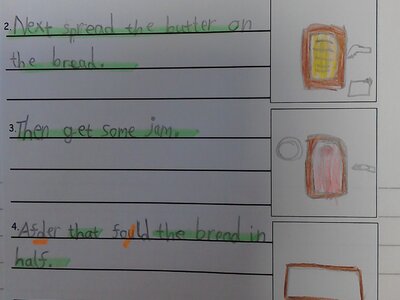 2. Next spread the butter on
the bread.
3. Then get some jam.
4. Afder that fould the bread in
half.